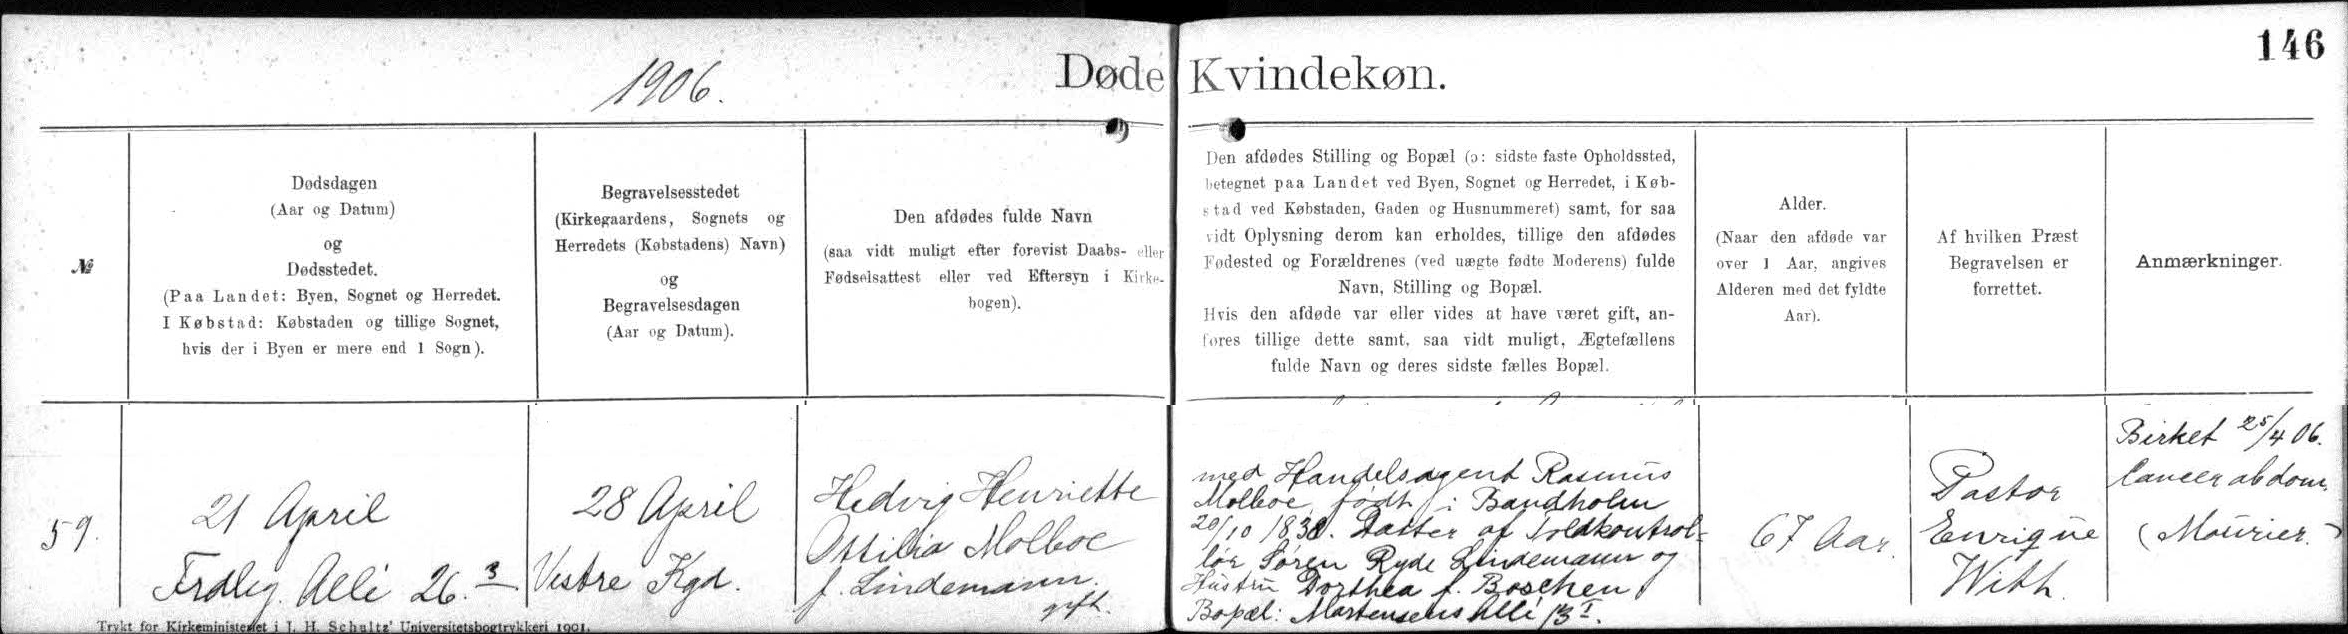 146
1906.
Døde Kvindekøn.
№
Dødsdagen
(Aar og Datum)
og
Dødsstedet.
(Paa Landet: Byen, Sognet og Herredet.
I Købstad: Købstaden og tillige Sognet,
hvis der i Byen er mere end 1 Sogn).
Begravelsesstedet
(Kirkegaardens, Sognets og
Herredets (Købstadens) Navn)
og
Begravelsesdagen
(Aar og Datum).
Den afdødes fulde Navn
(saa vidt muligt efter forevist Daabs- eller
Fødselsattest eller ved Eftersyn i Kirke-
bogen).
Den afdødes Stilling og Bopæl (ɔ: sidste faste Opholdssted,
betegnet paa Landet ved Byen, Sognet og Herredet, i Køb-
stad ved Købstaden, Gaden og Husnummeret) samt, for saa
vidt Oplysning derom kan erholdes, tillige den afdødes
Fødested og Forældrenes (ved uægte fødte Moderens) fulde
Navn, Stilling og Bopæl.
Hvis den afdøde var eller vides at have været gift, an-
føres tillige dette samt, saa vidt muligt, Ægtefællens
fulde Navn og deres sidste fælles Bopæl.
Alder.
(Naar den afdøde var
over 1 Aar, angives
Alderen med det fyldte
Aar).
Af hvilken Præst
Begravelsen er
forrettet.
Anmærkninger.
59.
21 April
Frdbg. Allé 26.3
28 April
Vestre Kgd.
Hedvig Henriette
Ottilia Molboe
f. Lindemann.
gift.
med Handelsagent Rasmus
Molboe, født i Bandholm
20/10 1838. Datter af Toldkontrol-
lør Søren Ryde Lindemann og
Hustru Dorthea f. Boschen
Bopæl: Martensens Allé 13 I.
67 Aar.
Pastor
Enrique
With.
Birket 25/4 06.
Cancer abdom.
(Mourier.)
Trykt for Kirkeministeriet i J. H. Schultz' Universitetsbogtrykkeri 1901.